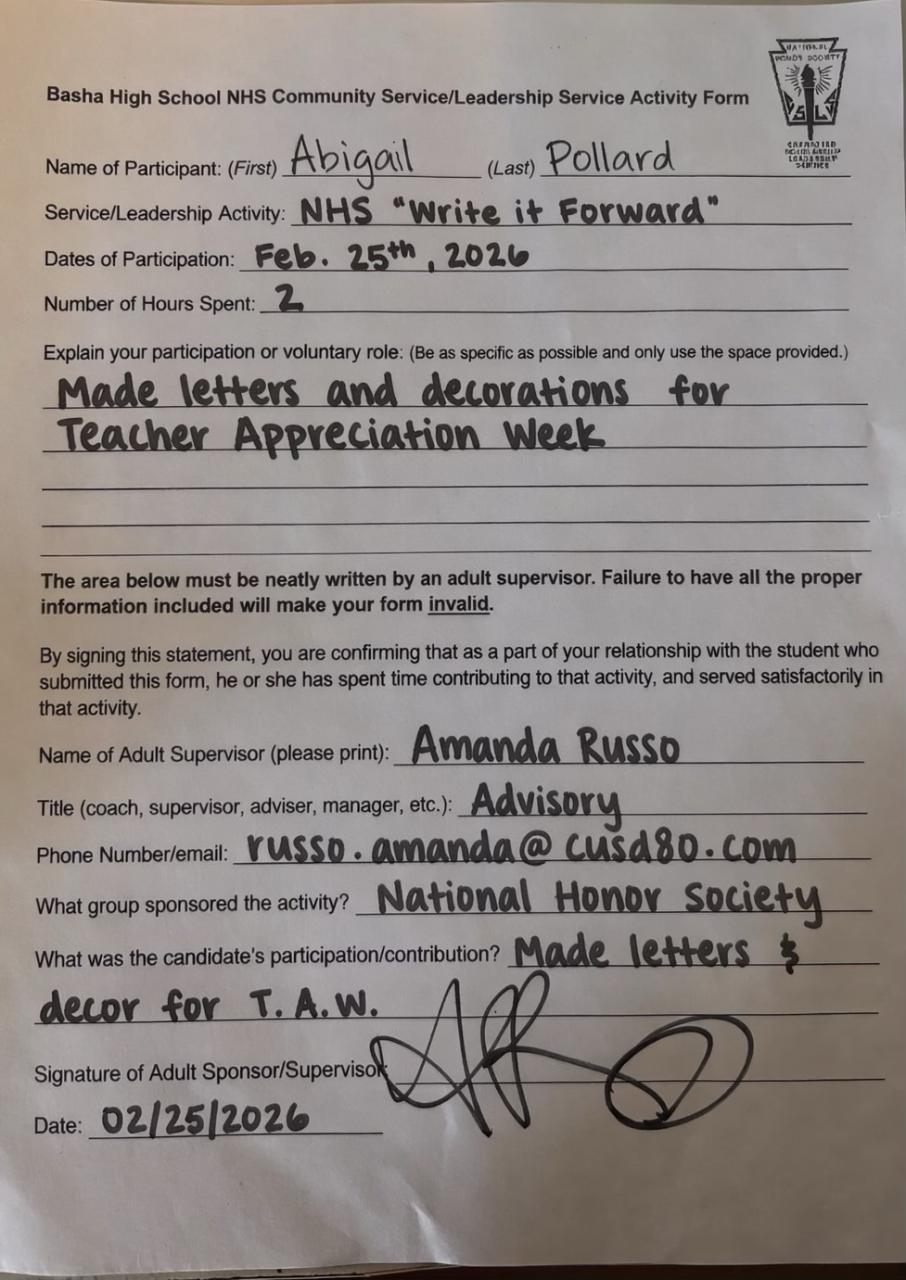 NATIONAL
HONOR SOCIETY
S L S
Basha High School NHS Community Service/Leadership Service Activity Form
Name of Participant: (First) Abigail (Last) Pollard
Service/Leadership Activity: NHS "Write it Forward"
Dates of Participation: Feb. 25th, 2026
Number of Hours Spent: 2
Explain your participation or voluntary role: (Be as specific as possible and only use the space provided.)
Made letters and decorations for
Teacher Appreciation Week
The area below must be neatly written by an adult supervisor. Failure to have all the proper
information included will make your form invalid.
By signing this statement, you are confirming that as a part of your relationship with the student who
submitted this form, he or she has spent time contributing to that activity, and served satisfactorily in
that activity.
Name of Adult Supervisor (please print): Amanda Russo
Title (coach, supervisor, adviser, manager, etc.): Advisory
Phone Number/email: russo.amanda@cusd80.com
What group sponsored the activity? National Honor Society
What was the candidate's participation/contribution? Made letters &
decor for T.A.W.
Signature of Adult Sponsor/Supervisor:
Date: 02/25/2026